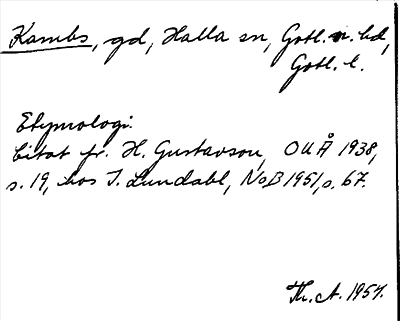 Kambs, gd, Halla sn, Gotl. n. hd,
Gotl. l.
Etymologi.
Citat fr. H. Gustavson, OUÅ 1938,
s. 19, hos I. Lundahl, NoB 1951, s. 67.
Th. A. 1957.